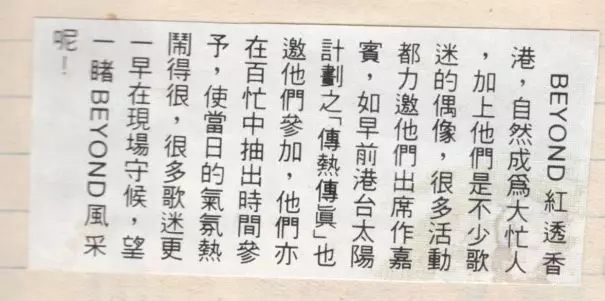 BEYOND 紅透香
港，自然成爲大忙人
，加上他們是不少歌
迷的偶像，很多活動
都力邀他們出席作嘉
賓，如早前港台太陽
計劃之「傳熱傳眞」也
邀他們參加，他們亦
在百忙中抽出時間參
予，使當日的氣氛熱
鬧得很，很多歌迷更
一早在現場守候，望
一睹 BEYOND 風采
呢！